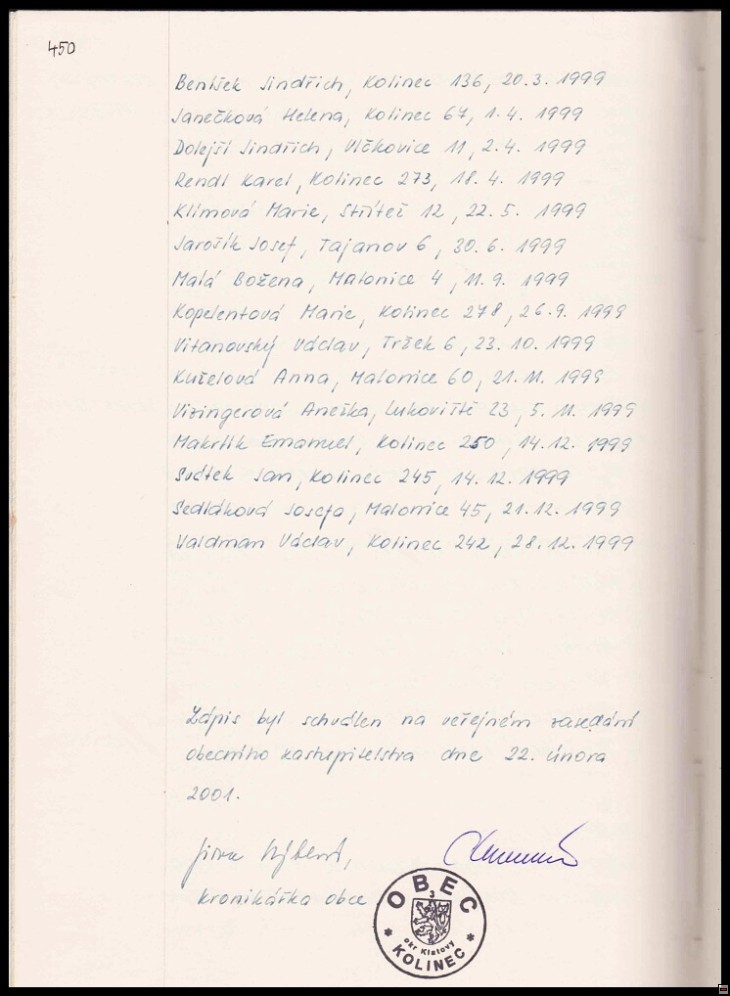 450
Beníšek Jindřich, Kolinec 136, 20.3. 1999
Janečková Helena, Kolinec 67, 1.4. 1999
Dolejší Jindřich, Vlčkovice 11, 2.4. 1999
Rendl Karel, Kolinec 273, 18.4. 1999
Klímová Marie, Střítež 12, 22.5. 1999
Jarošík Josef, Tajanov 6, 30.6. 1999
Malá Božena, Malonice 4, 11.9. 1999
Kopelentová Marie, Kolinec 278, 26.9. 1999
Vitanovský Václav, Tržek 6, 23.10. 1999
Kuželová Anna, Malonice 60, 21.11. 1999
Vizingerová Anežka, Lukoviště 23, 5.11. 1999
Makrlík Emanuel, Kolinec 250, 14.12. 1999
Svátek Jan, Kolinec 245, 14.12. 1999
Sedláková Josefa, Malonice 45, 21.12. 1999
Valdman Václav, Kolinec 242, 28.12. 1999
Zápis byl schválen na veřejném zasedání
obecního zastupitelstva dne 22. února
2001.
kronikářka obce
OBEC
3
okr Klatovy
KOLINEC